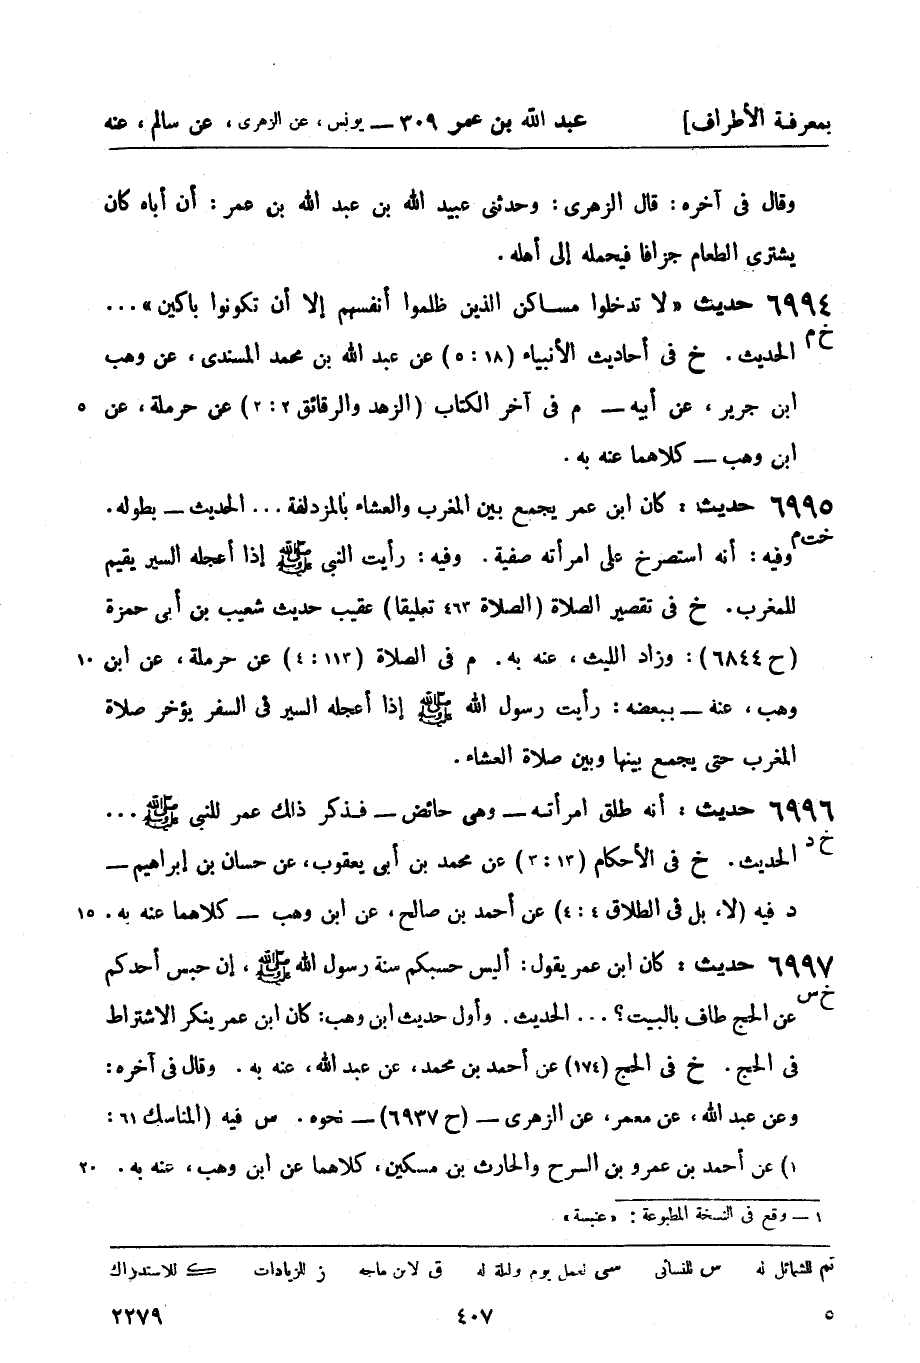 بمعرفة الأطراف] عبد الله بن عمر ٣٠٩ — يونس، عن الزهرى، عن سالم، عنه
وقال فى آخره: قال الزهرى: وحدثنى عبيد الله بن عبد الله بن عمر: أن أباه كان
يشترى الطعام جزافا فيحمله إلى أهله.
٦٩٩٤ حديث «لا تدخلوا مساكن الذين ظلموا أنفسهم إلا أن تكونوا باكين»...
خ م الحديث. خ فى أحاديث الأنبياء (١٨: ٥) عن عبد الله بن محمد المسندى، عن وهب
ابن جرير، عن أبيه — م فى آخر الكتاب (الزهد والرقائق ٢: ٢) عن حرملة، عن ٥
ابن وهب — كلاهما عنه به.
٦٩٩٥ حديث: كان ابن عمر يجمع بين المغرب والعشاء بالمزدلفة... الحديث — بطوله.
خت م وفيه: أنه استصرخ على امرأته صفية. وفيه: رأيت النبى ﷺ إذا أعجله السير يقيم
للمغرب. خ فى تقصير الصلاة (الصلاة ٤٦٣ تعليقا) عقيب حديث شعيب بن أبى حمزة
(ح ٦٨٤٤): وزاد الليث، عنه به. م فى الصلاة (١١٣: ٤) عن حرملة، عن ابن ١٠
وهب، عنه — ببعضه: رأيت رسول الله ﷺ إذا أعجله السير فى السفر يؤخر صلاة
المغرب حتى يجمع بينها وبين صلاة العشاء.
٦٩٩٦ حديث: أنه طلق امرأته — وهى حائض — فذكر ذاك عمر للنبى ﷺ...
خ د الحديث. خ فى الأحكام (١٣: ٣) عن محمد بن أبى يعقوب، عن حسان بن إبراهيم —
د فيه (لا، بل فى الطلاق ٤: ٤) عن أحمد بن صالح، عن ابن وهب — كلاهما عنه به. ١٥
٦٩٩٧ حديث: كان ابن عمر يقول: أليس حسبكم سنة رسول الله ﷺ، إن حبس أحدكم
خ س عن الحج طاف بالبيت؟... الحديث. وأول حديث ابن وهب: كان ابن عمر ينكر الاشتراط
فى الحج. خ فى الحج (١٧٤) عن أحمد بن محمد، عن عبد الله، عنه به. وقال فى آخره:
وعن عبد الله، عن معمر، عن الزهرى — (ح ٦٩٣٧) — نحوه. س فيه (المناسك ٦١:
١) عن أحمد بن عمرو بن السرح والحارث بن مسكين، كلاهما عن ابن وهب، عنه به. ٢٠
١ — وقع فى النسخة المطبوعة: «عنبسة»
تم للشمائل له س للنسائى سى لعمل يوم وليلة له ق لابن ماجه ز للزيادات ك للاستدراك
٥ ٤٠٧ ٢٢٧٩